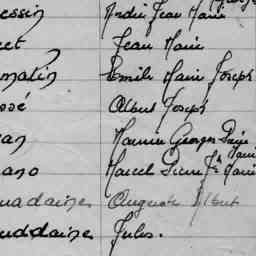 essin André Jean Marie
et Jean Marie
matin Emile Marie Joseph
ssé Albert Joseph
an Maurice Georges Désiré Marie
ano Marcel Pierre Jh Marie
uadaines Auguste Albert
uddaines Jules.